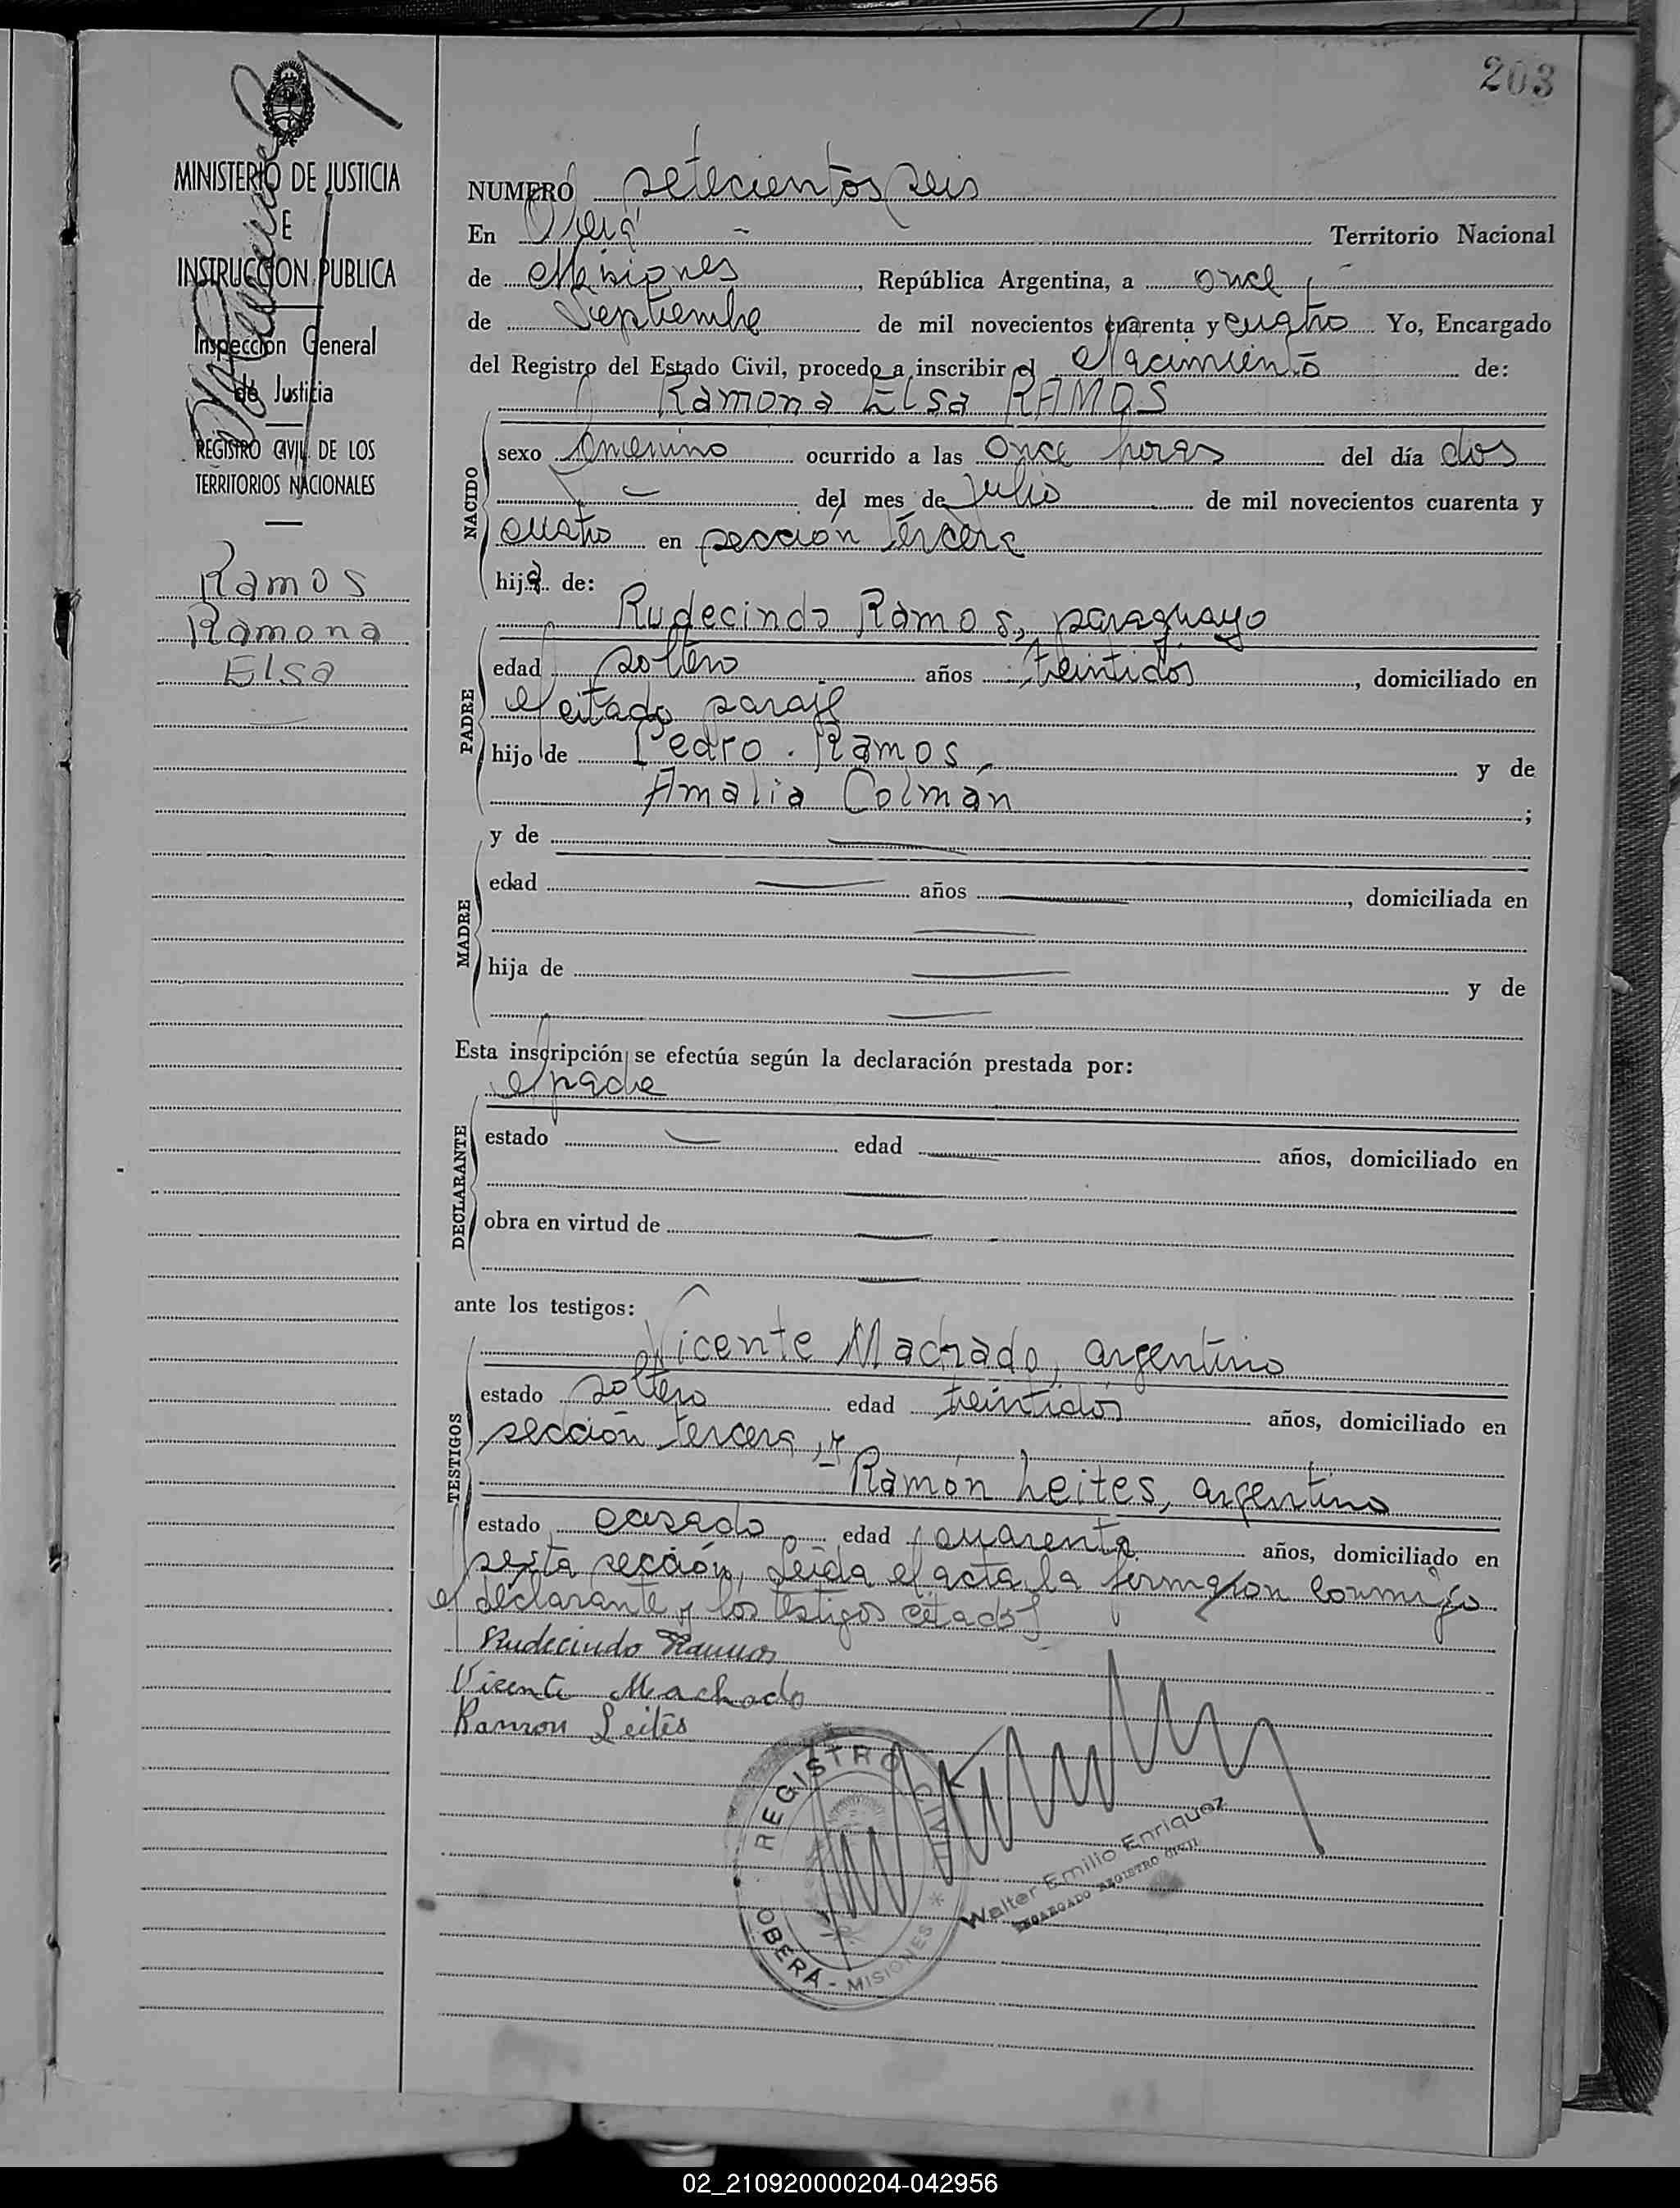 203
MINISTERIO DE JUSTICIA
E
INSTRUCCION PUBLICA
Inspección General
de Justicia
REGISTRO CIVIL DE LOS
TERRITORIOS NACIONALES
Ramos
Ramona
Elsa
NUMERO setecientos seis
En Oberá Territorio Nacional
de Misiones, República Argentina, a once
de Septiembre de mil novecientos cuarenta y cuatro Yo, Encargado
del Registro del Estado Civil, procedo a inscribir el Nacimiento de:
Ramona Elsa RAMOS
NACIDO
sexo femenino ocurrido a las once horas del día dos
del mes de Julio de mil novecientos cuarenta y
cuatro en sección tercera
hija de:
Rudecindo Ramos, paraguayo
PADRE
edad soltero años treintidos, domiciliado en
el citado paraje
hijo de Pedro Ramos y de
Amalia Colmán ;
y de
MADRE
edad años , domiciliada en
hija de y de
Esta inscripción se efectúa según la declaración prestada por:
el padre
DECLARANTE
estado edad años, domiciliado en
obra en virtud de
ante los testigos:
Vicente Machado, argentino
TESTIGOS
estado soltero edad treintidós años, domiciliado en
sección tercera, y
Ramón Leites, argentino
estado casado edad cuarenta años, domiciliado en
sexta sección, Leida el acta la firmaron conmigo
el declarante y los testigos citados
Rudecindo Ramos
Vicente Machado
Ramon Leites
REGISTRO CIVIL
OBERÁ - MISIONES *
Walter Emilio Enriquez
ENCARGADO REGISTRO CIVIL
02_210920000204-042956